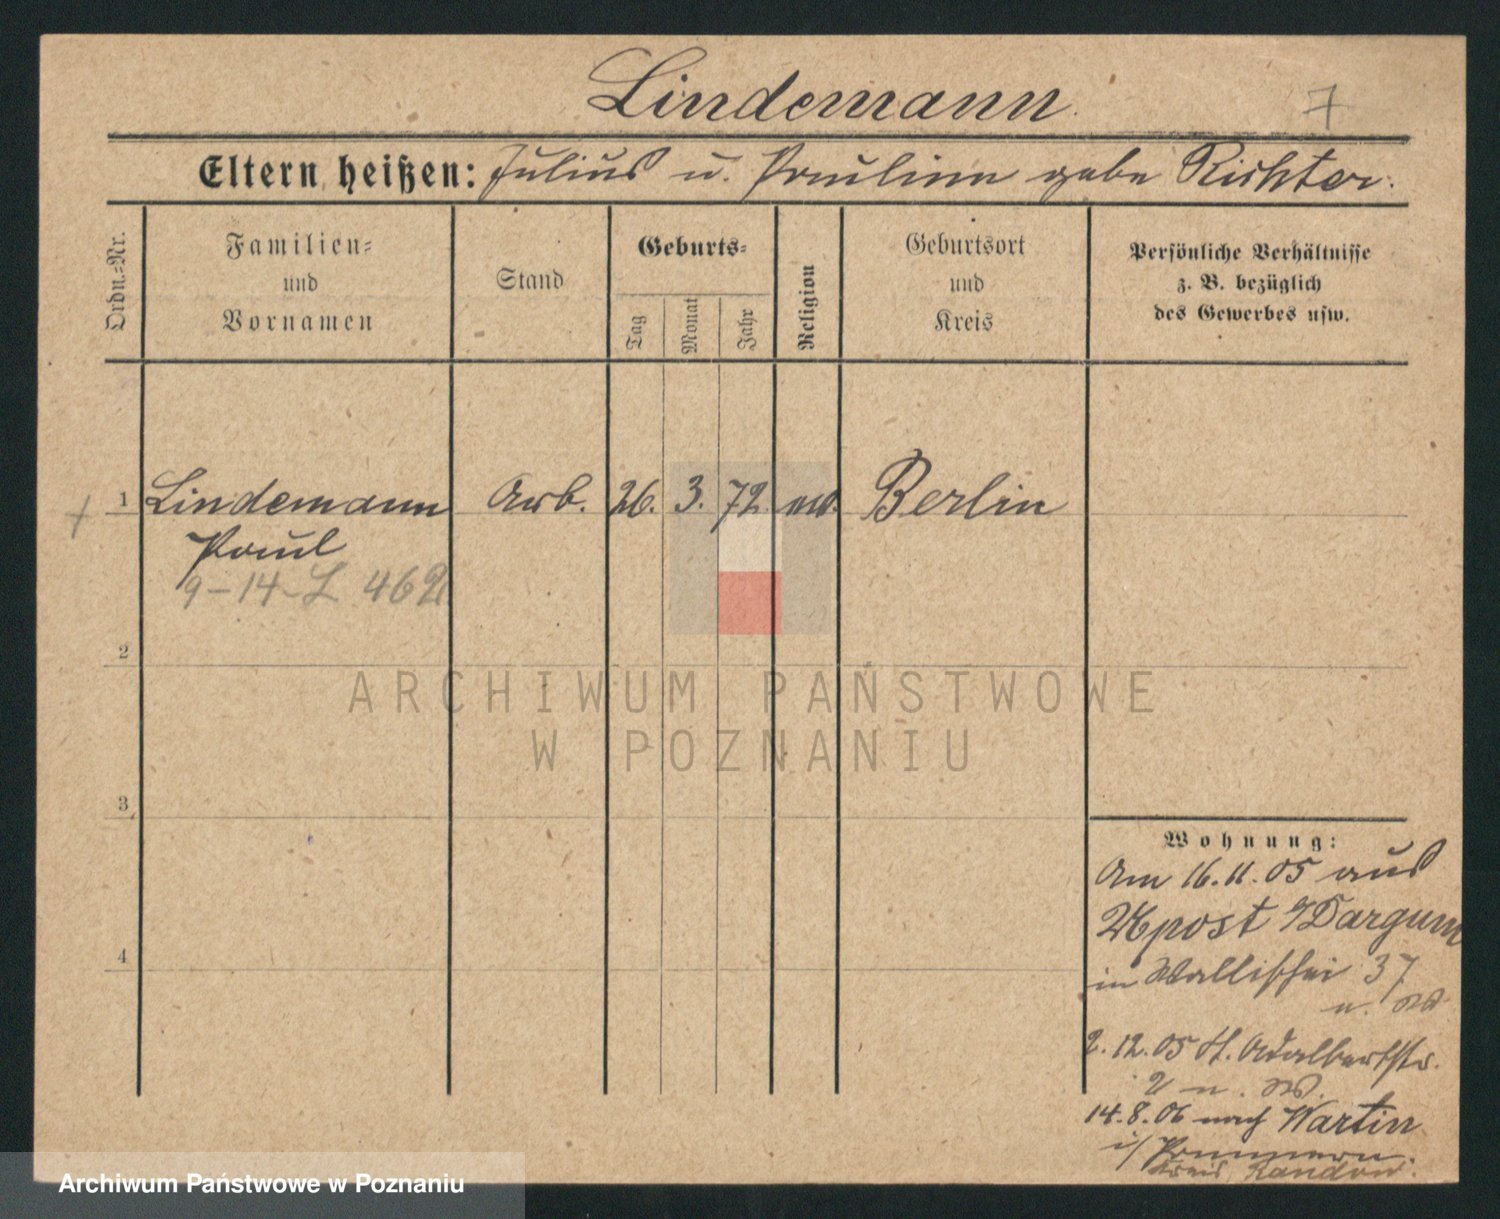 Lindemann
7
Eltern heißen: Julius u. Pauline gebe Richter.
Ordn.=Nr.
Familien=
und
Vornamen
Stand
Geburts=
Tag
Monat
Jahr
Religion
Geburtsort
und
Kreis
Persönliche Verhältnisse
z. B. bezüglich
des Gewerbes usw.
+ 1 Lindemann Arb. 26. 3. 72. ev. Berlin
Paul
9-14-L 462
2
ARCHIWUM PAŃSTWOWE
W POZNANIU
3
Wohnung:
Am 16.11.05 aus
post Dargum
in Wallischei 37
2.12.05 St. Adalbertstr.
2
14.8.06 nach Wartin
i/ Pommern.
Kreis Randow.
4
Archiwum Państwowe w Poznaniu